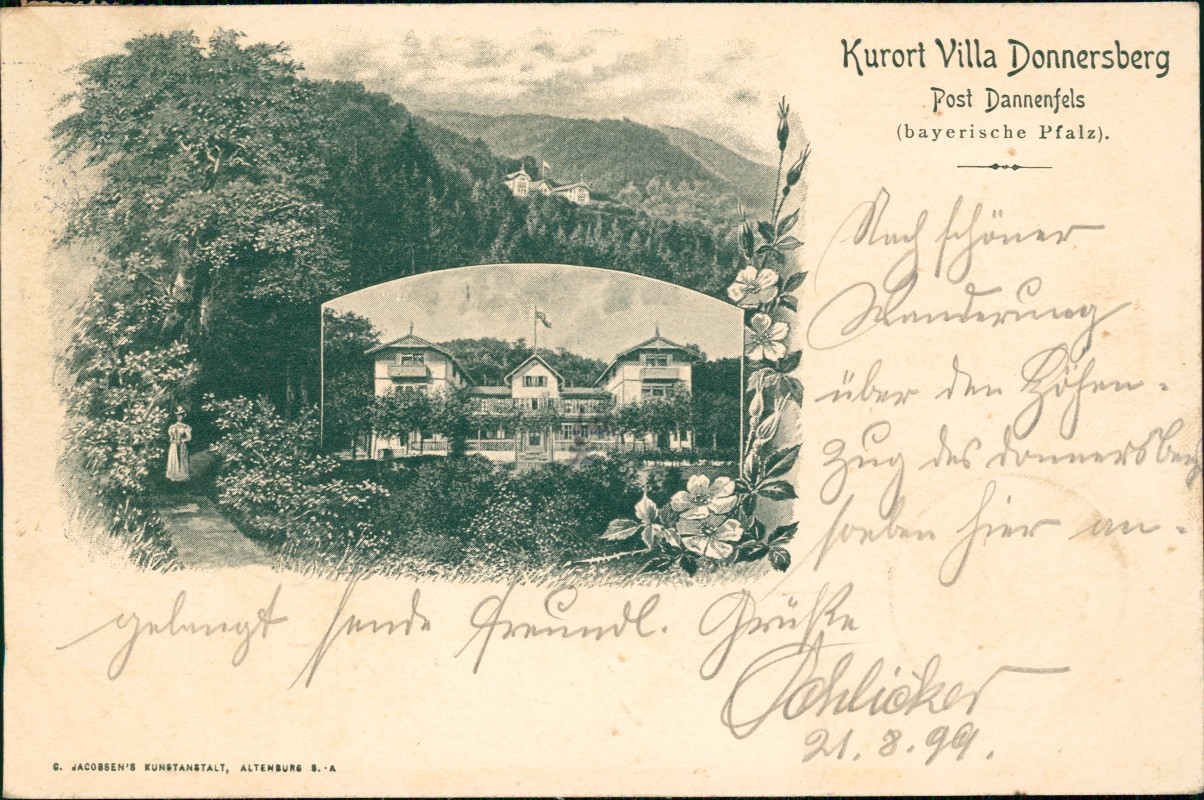 Kurort Villa Donnersberg
Post Dannenfels
(bayerische Pfalz).
Nach schöner
Wanderung
über den Höhen-
Zug des Donnersberg
soeben hier an-
gelangt sende freundl. Grüße
Schlicker
21.8.99.
C. JACOBSEN'S KUNSTANSTALT, ALTENBURG S.-A